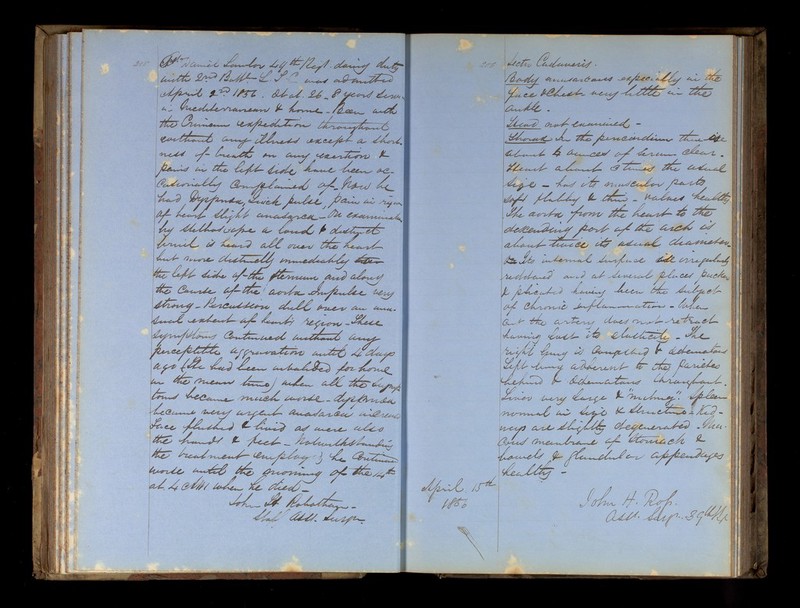 205
Pte Daniel Lawlor 49th Regt doing duty
with 2nd Battn L. T. C. was admitted
April 2nd 1856. Ætat 26 - 8 years Service
in Mediterranean & home. Been with
the Crimean expedition throughout
without any illness except a short-
ness of breath on any exertion &
pains in the left side have been oc-
casionally complained of. Now he
had Dyspnœa, quick pulse, pain in region
of heart slight anasarca - On examination
by stethoscope a loud & distinct
bruit is heard all over the heart
but more distinctly immediately
the left side of the sternum and along
the course of the aorta Impulse very
strong - Percussion dull over an unu-
sual extent of heart's region - These
symptoms continued without any
perceptible aggravation until 4 days
ago (He had been invalided for home
in the mean time) when all the symp-
toms became much worse - dyspnœa
became very urgent anasarca
Face flushed & livid as were also
the hands & feet - Notwithstanding
the treatment employed he continued
worse until the morning of the 14th
at 4 AM when he died -
John
Staff Asst. Surgn
205
Sectio Cadaveris.
Body anasarcous especially in the
face & Chest very little in the
ankle.
Head not examined -
Thorax In the pericardium there are
about 4 ounces of serum clear.
Heart about 3 times the usual
size - has its muscular parts
soft flabby & thin - valves healthy
The aorta from the heart to the
descending part of the arch is
about twice its usual diameter
Its internal surface is irregularly
and at several places pucker
& having been the subject
of chronic inflammation - When
cut the artery does not retract
having lost its elasticity - The
right lung is congested & œdematous
Left lung adherent to the parietes
behind & œdematous throughout.
Liver very large & "nutmeg". Spleen
normal in size & structure - Kid-
neys are slightly degenerated - Mu-
cous membrane of stomach &
bowels & glandular appendages
healthy -
April 15th
1856
John H. Ross
Asst. Surgn. 39th Rg